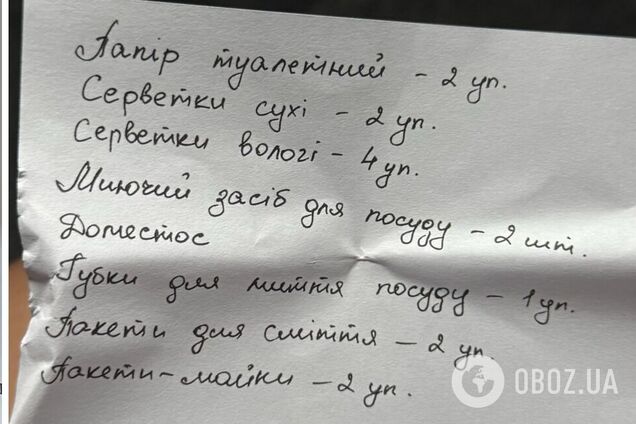 Папір туалетний - 2 уп.
Серветки сухі - 2 уп.
Серветки вологі - 4 уп.
Миючий засіб для посуду - 2 шт.
Доместос
Губки для миття посуду - 1 уп.
Пакети для сміття - 2 уп.
Пакети-майки - 2 уп.
OBOZ.UA